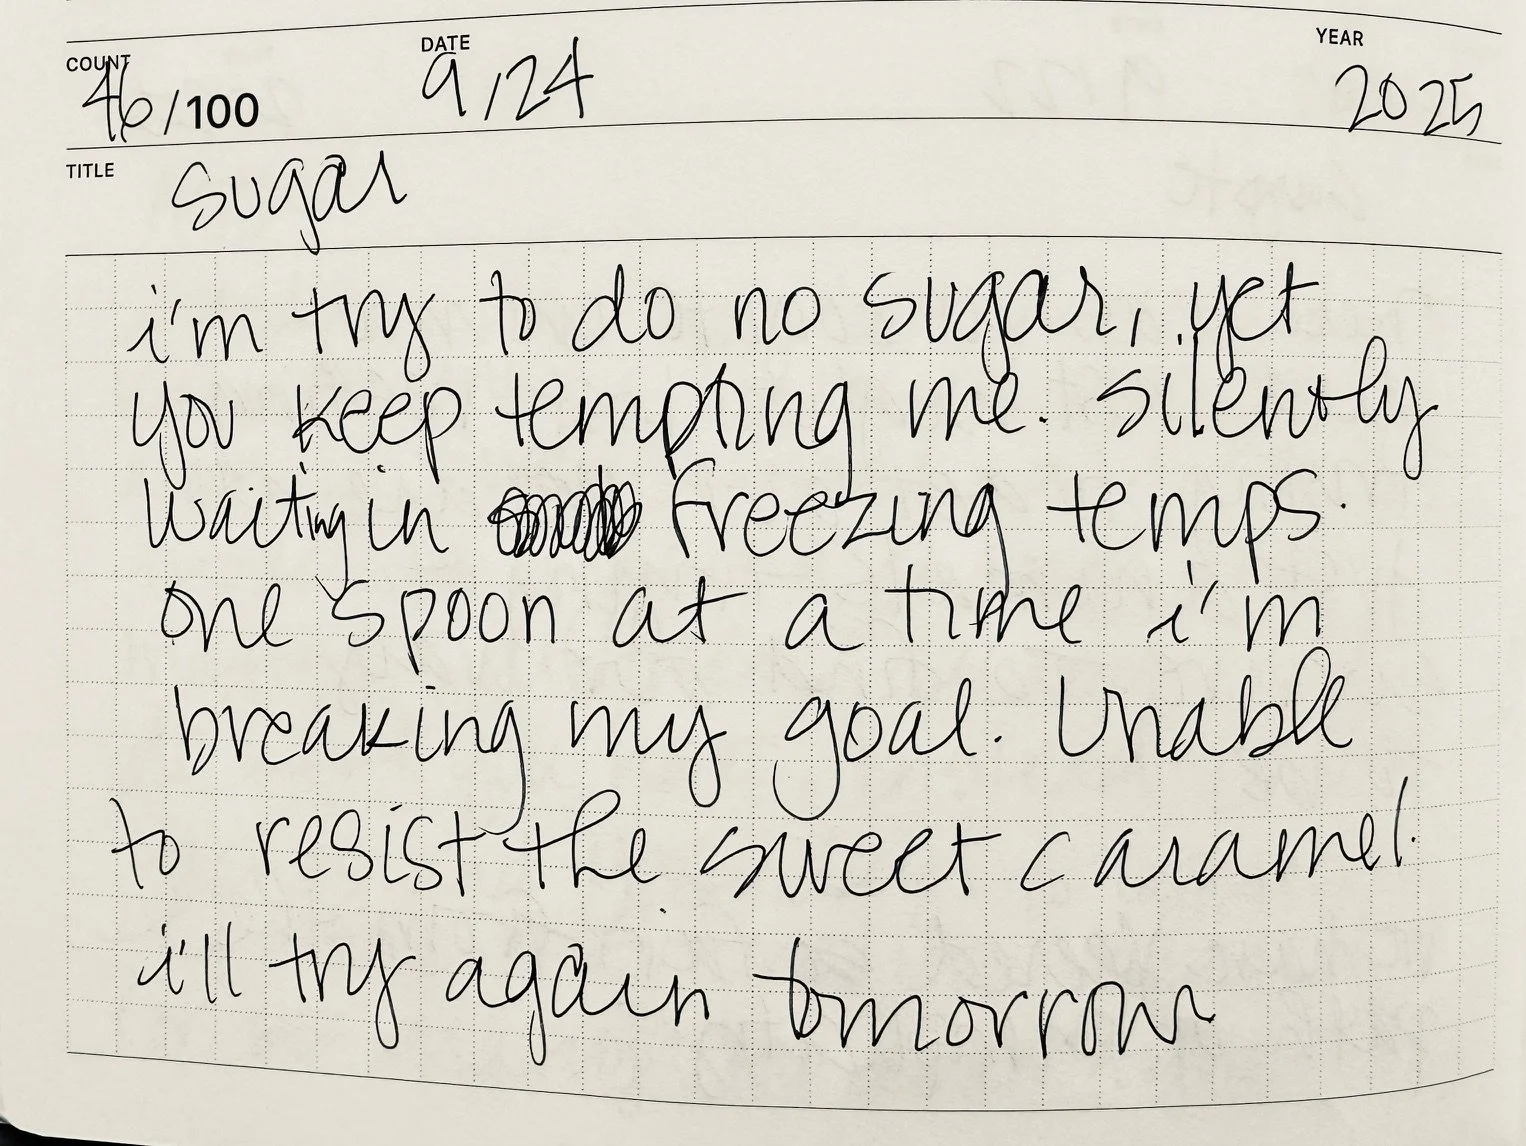 COUNT DATE YEAR
46/100 9/24 2025
TITLE sugar
i'm try to do no sugar, yet
you keep tempting me. silently
waiting in freezing temps.
one spoon at a time i'm
breaking my goal. Unable
to resist the sweet caramel.
i'll try again tomorrow